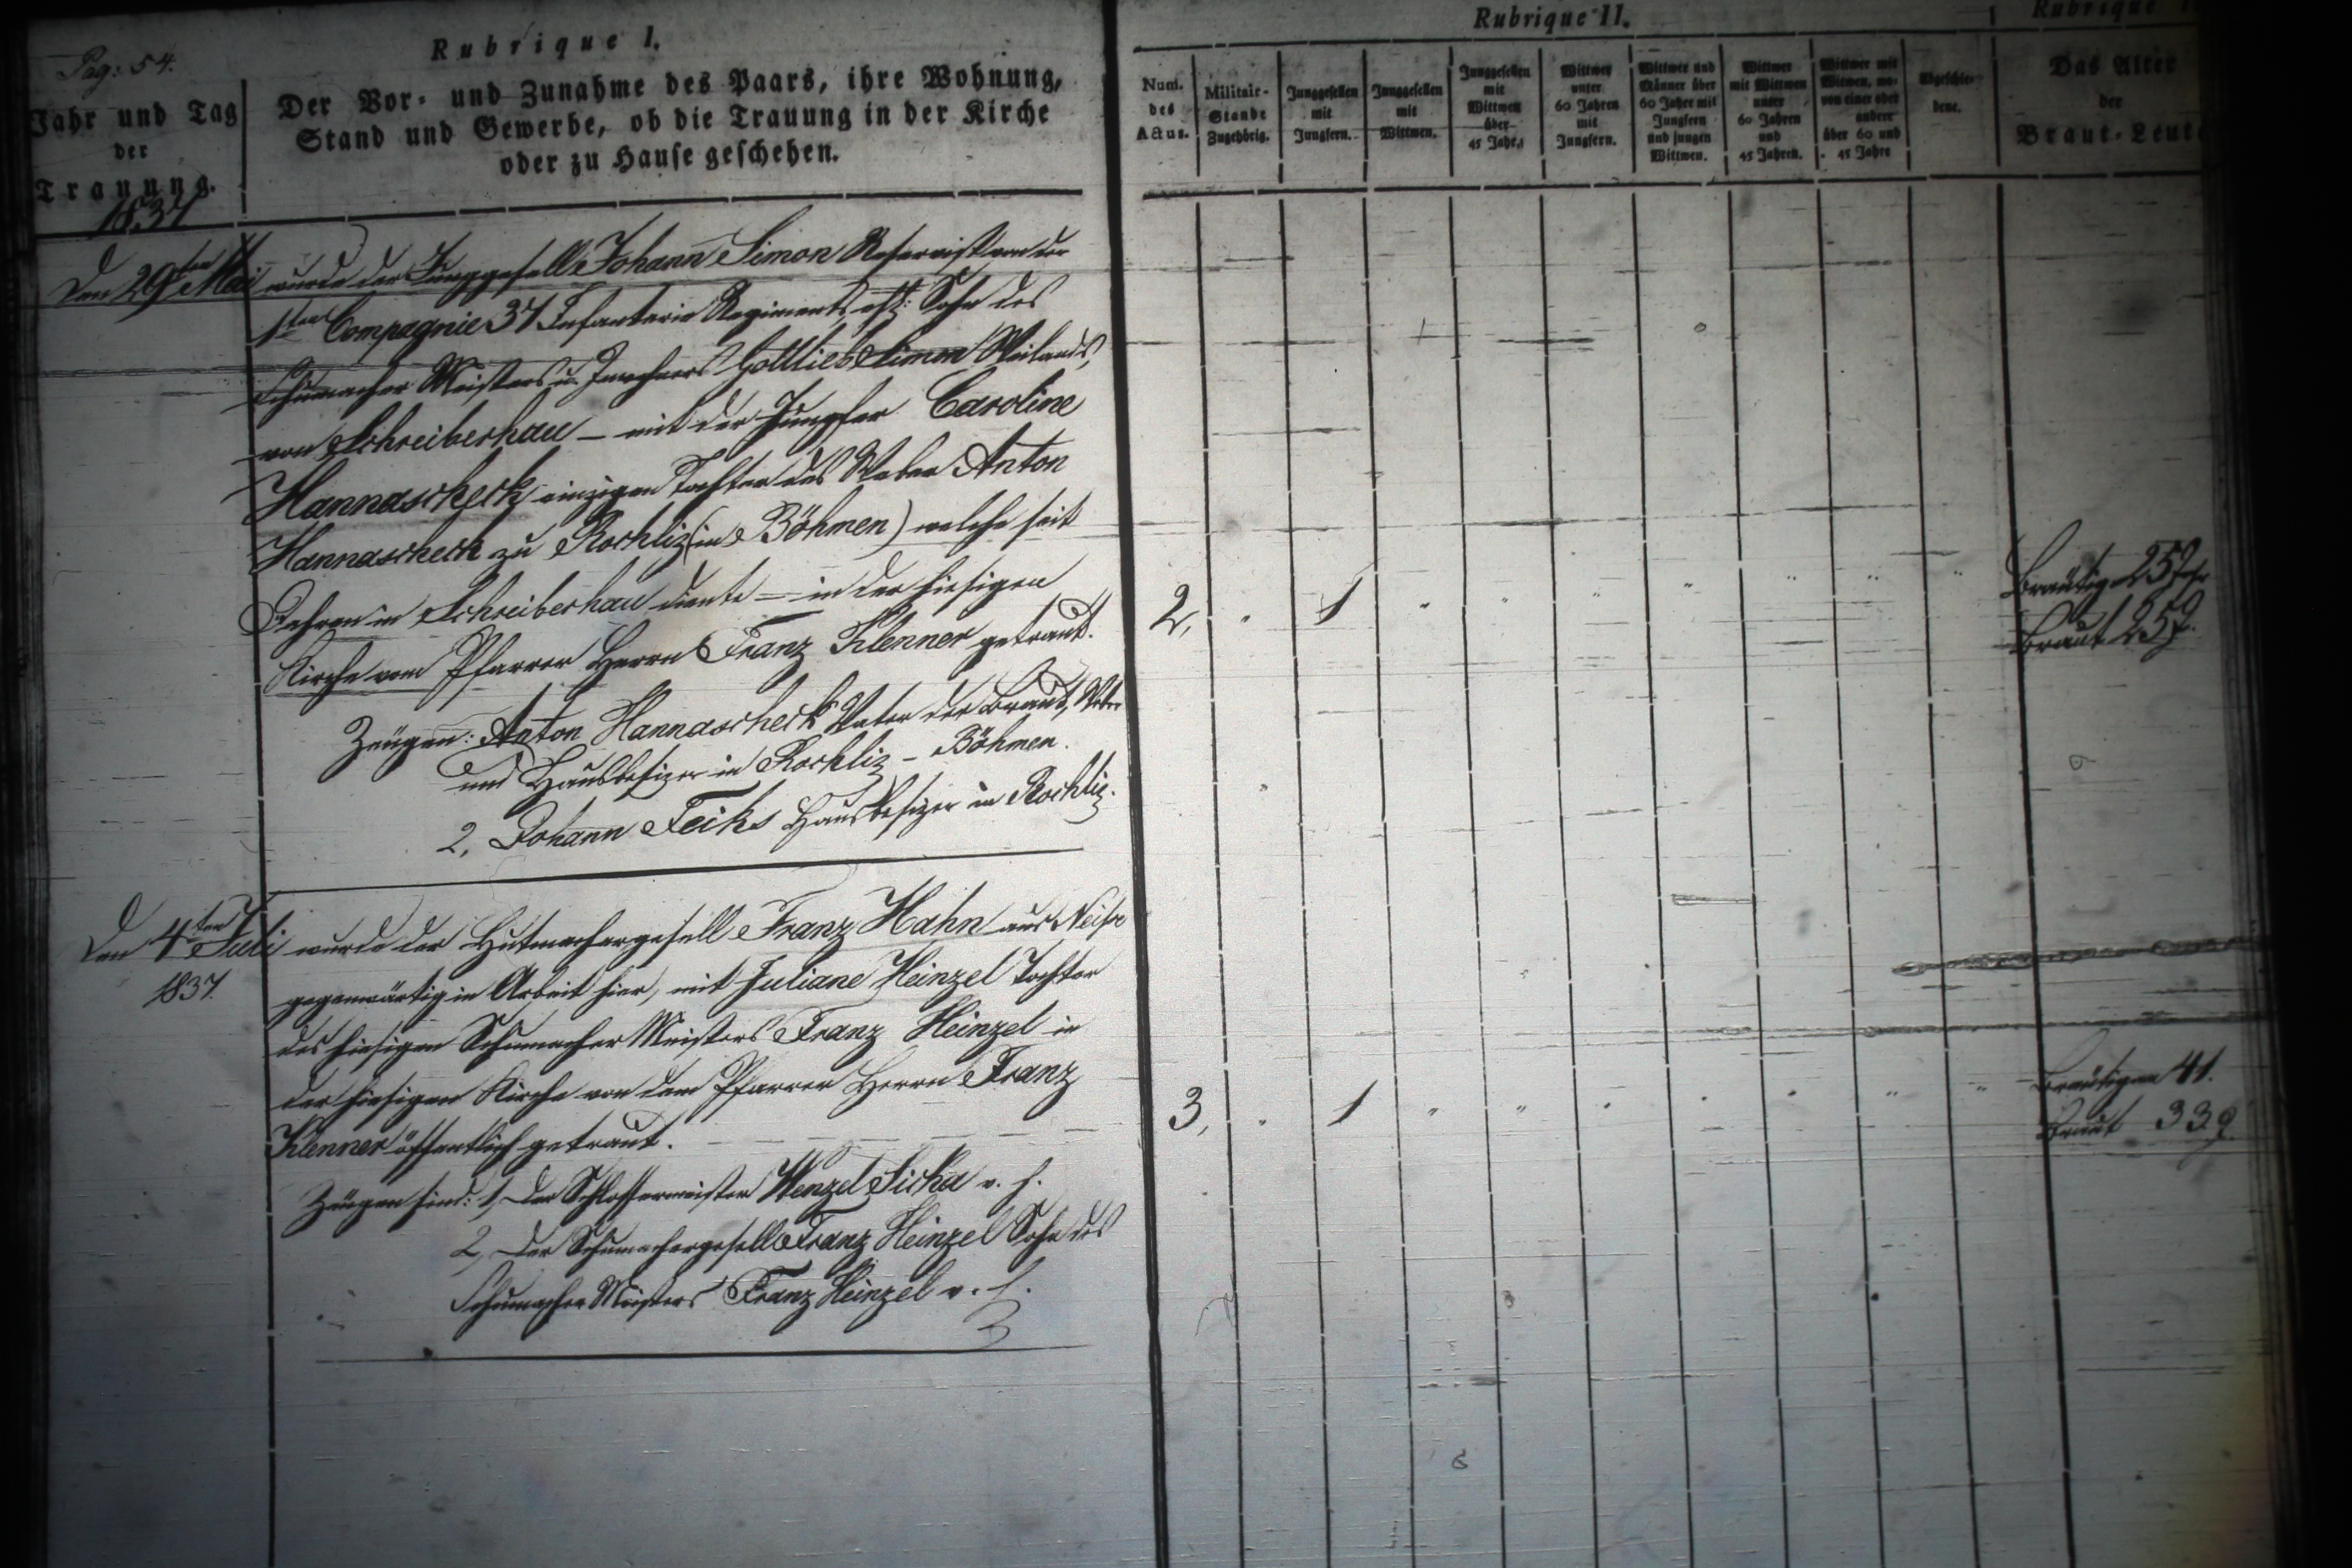 Pag: 54.
Rubrique I.
Jahr und Tag
der
Trauung.
Der Vor- und Zunahme des Paars, ihre Wohnung,
Stand und Gewerbe, ob die Trauung in der Kirche
oder zu Hause geschehen.
1837
Den 29ten Mai wurde der Junggesell Johann Simon Reservist von der
1ten Compagnie 37 Infanterie Regiments, Sohn des
Schumacher Meisters u. Inwohners Gottlieb Simon Weilands,
von Schreiberhau – mit der Jungfer Caroline
Hannascheck einzigen Tochter des Weber Anton
Hannascheck zu Rochliz (in Böhmen) welche seit
Jahren in Schreiberhau diente – in der hiesigen
Kirche vom Pfarrer Herrn Franz Klenner getraut.
Zeugen: Anton Hannascheck Vater der Braut, Weber
und Hausbesizer in Rochliz – Böhmen.
2, Johann Feiks Hausbesizer in Rochliz.
Den 4ten Juli wurde der Hutmachergesell Franz Hahn aus Neiße
1837.
gegenwärtig in Arbeit hier, mit Juliane Heinzel Tochter
des hiesigen Schumacher Meisters Franz Heinzel in
der hiesigen Kirche von dem Pfarrer Herrn Franz
Klenner öffentlich getraut.
Zeugen sind: 1, Der Schlossermeister Wenzel Sicka v. h.
2, Der Schumachergesell Franz Heinzel Sohn des
Schumacher Meisters Franz Heinzel v. h.
Rubrique II.
Num.
des
Actus.
Militair-
Stande
Zugehörig.
Junggesellen
mit
Jungfern.
Junggesellen
mit
Wittwen.
Junggesellen
mit
Wittwen
über
45 Jahr.
Wittwer
unter
60 Jahren
mit
Jungfern.
Wittwer und
Männer über
60 Jahre mit
Jungfern
und jungen
Wittwen.
Wittwer
mit Wittwen
unter
60 Jahren
und
45 Jahren.
Wittwer mit
Witwen, wo-
von einer oder
andere
über 60 und
45 Jahre
Abgeschie-
dene.
Rubrique
Das Alter
der
Braut-Leute
2, " 1 " " " " " " "
Bräutig. 25 Jhr
Braut 25 J.
3, " 1 " " " " " " "
Bräutigam 41.
Braut 33 J.